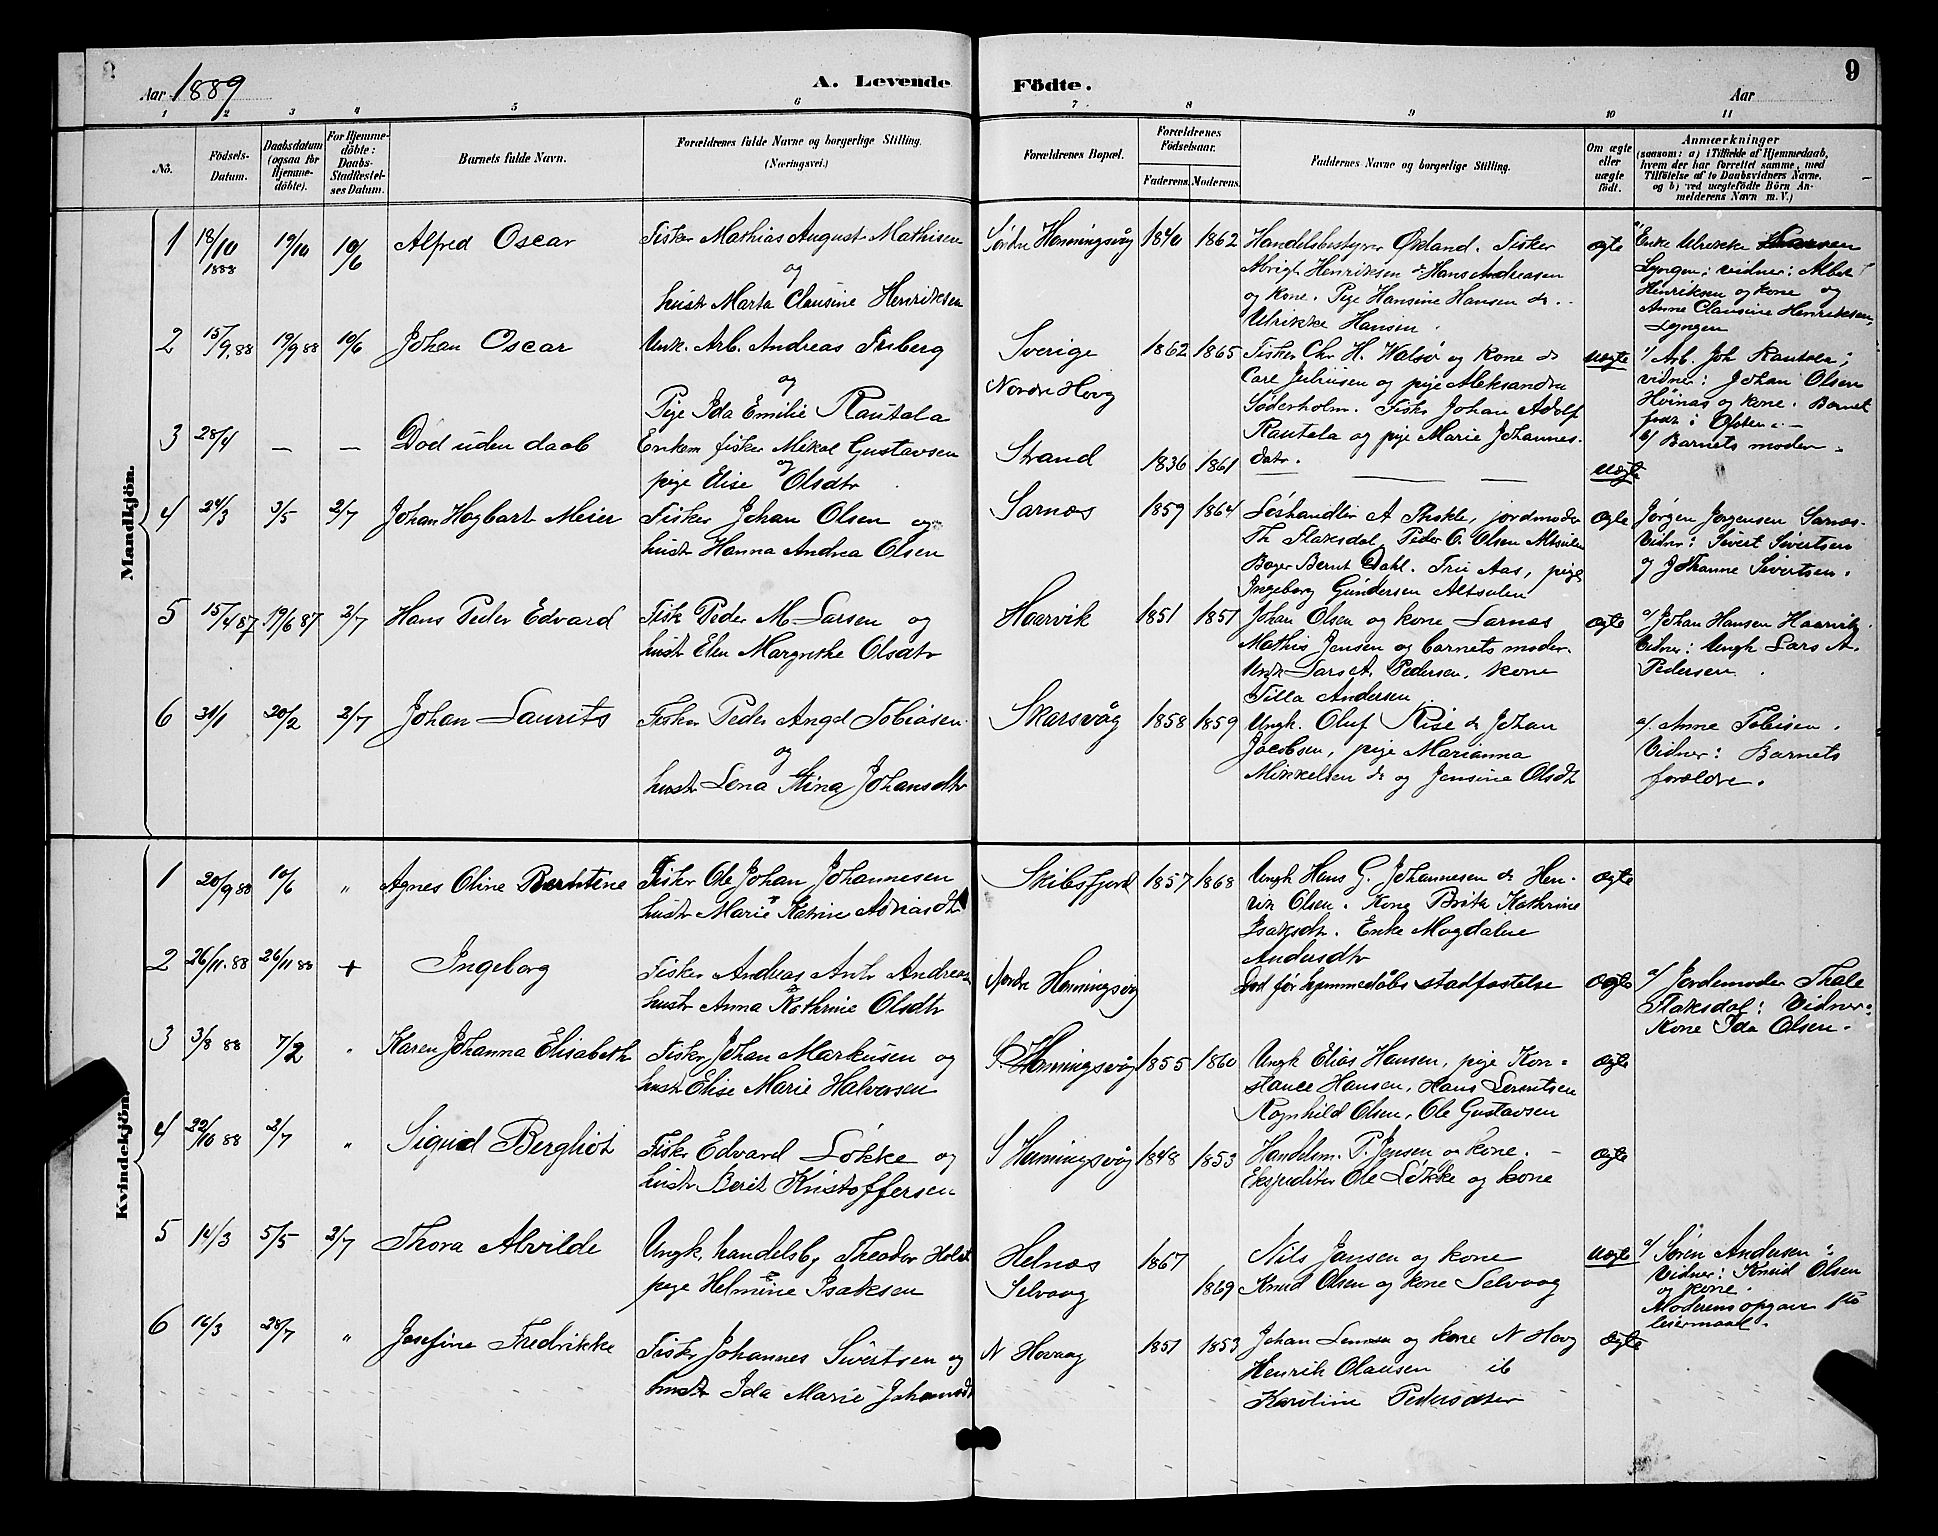 Aar 1889
A. Levende
Födte.
9
Aar
1 2 3 4 5 6 7 8 9 10 11
No.
Födsels-Datum.
Daabsdatum (ogsaa for Hjemme-döbte).
For Hjemme-döbte: Daabs-Stadfæstel-ses Datum.
Barnets fulde Navn.
Forældrenes fulde Navne og borgerlige Stilling. (Næringsvei.)
Forældrenes Bopæl.
Forældrenes Födselsaar.
Faderens. Moderens.
Faddernes Navne og borgerlige Stilling.
Om ægte eller uægte födt.
Anmærkninger
(saasom: a) i Tilfælde af Hjemmedaab,
hvem der har forrettet samme, med
Tilföielse af to Daabsvidners Navne,
og b) ved uægtefödte Börn An-
melderens Navn m. V.)
Mandkjön.
1 18/10 1888 19/10 10/6 Alfred Oscar
Fisker Mathias August Mathisen
og
hustr Marta Clausine Henriksen
Søndre Honningsvåg 1840 1862
Handelsbestyrer Økland. Fisker
Abrigt Henriksen Hans Andreasen
og kone. Pige Hansine Hansen ds.
Ulrikke Hansen.
ægte
Enke Ulrikke
Lyngen; vidner: Albert
Henriksen og kone og
Anne Clausine Henriksen,
Lyngen
2 15/9 88 19/9 88 10/6 Johan Oscar
Unk. Arb. Andreas Friberg
og
Pige Ida Emilie Rautala
Sverige
Nordre Hovg
1862 1865
Fisker Chr H. Walsø og kone ds
Carl Juliusen og pige Aleksandra
Söderholm. Fisker Johan Adolf
Rautala og pige Marie Johannes.
datr.
uægte
a/ Arb. Joh Rautala;
vidner: Johan Olsen
Høinas og kone. Barnet
født i Ofoten.
b/ Barnets moder.
3 28/4 — — Død uden daab
Enkem fisker Mikal Gustavsen
og
pige Elise Olsdtr
Strand 1836 1861 — — — uægte
4 24/3 3/5 2/7 Johan Hagbart Meier
Fisker Johan Olsen og
hustr Hanna Andrea Olsen
Sarnæs 1859 1864
Løshandler A , jordmoder
Th Flaksdal, Peder O. Olsen Altsulen
Bager Bernt Dahl. Fru Aas, pige
Ingeborg Gundersen Altsulen
ægte
Jørgen Jørgensen Sarnæs.
Vidner: Sivert Sivertsen
og Johanne Sivertsen.
5 15/4 87 19/6 87 2/7 Hans Peder Edvard
Fisk Peder M Larsen og
hustr Elen Margrethe Olsdtr
Haarvik 1851 1851
Johan Olsen og kone Sarnæs
Mathis Jensen og barnets moder.
Ungk Lars A. Pedersen, kone
Silla Andersen
ægte
a/ Johan Hansen Haarvik.
Vidner: Ungk Lars A.
Pedersen.
6 31/1 20/2 2/7 Johan Laurits
Fisker Peder Angel Tobiasen
og
hustr Lena Stina Johansdtr
Skarsvåg 1858 1859
Ungk. Oluf Rise ds Johan
Jacobsen, pige Marianna
Mikkelsen ds og Jensine Olsdtr
a/. Anne Tobisen.
Vidner: Barnets
forældre.
Kvindekjön.
1 20/9 88 10/6 " Agnes Oline Berntine
Fisker Ole Johan Johannesen
hustr Marie Katrine
Skibsfjord 1857 1868
Ungk Hans G. Johannesen ds Hen-
rik Olsen. Kone Brita Kathrine
Isaksdtr. Enke Magdalene
Andersdtr
ægte
2 26/11. 88 26/11 88 + Ingeborg
Fisker Andreas Antr Andreas
og
hustr Anna Kathrine Olsdtr
Nordre Honningsvåg
Død før hjemmedåbs stadfæstelse
ægte
a/ Jordemoder Thale
Flaksdal: Vidner:
Kone Ida Olsen.
3 3/8 88 7/2 " Karen Johanna Elisabeth
Fisker Johan Markusen og
hustr Elise Marie Halvorsen
S. Honningsvåg 1855 1860
Ungk Elias Hansen, pige Kon-
stance Hansen, Hans Lauritsen
Ragnhild Olsen, Ole Gustavsen
ægte
4 22/10 88 2/7 " Sigrid Bergliot
Fisker Edvard Løkke og
hustr Berit Kristoffersen
S Honningsvåg 1848 1853
Handelsm. P. Jensen og kone. —
Ekspeditør Ole Løkke og kone
ægte
5 14/3 5/5 2/7 Thora Alvilde
Ungk, handelsb. Theodor Holst
og
pige Helmine Isaksen
Helnæs
Selvaag
1867
1869
Nils Jansen og kone
Knud Olsen og kone Selvaag
uægte
a/ Søren Andersen.
Vidner: Knud Olsen
og kone.
Moderens opgave
leiermaal.
6 16/3 28/7 " Josefine Fredrikke
Fisker Johannes Sivertsen og
hustr Ida Marie Johansdtr
N Hovaag 1851 1853
Johan og kone N Hovg
Henrik Olausen ib
Karoline Pedersdtr
ægte